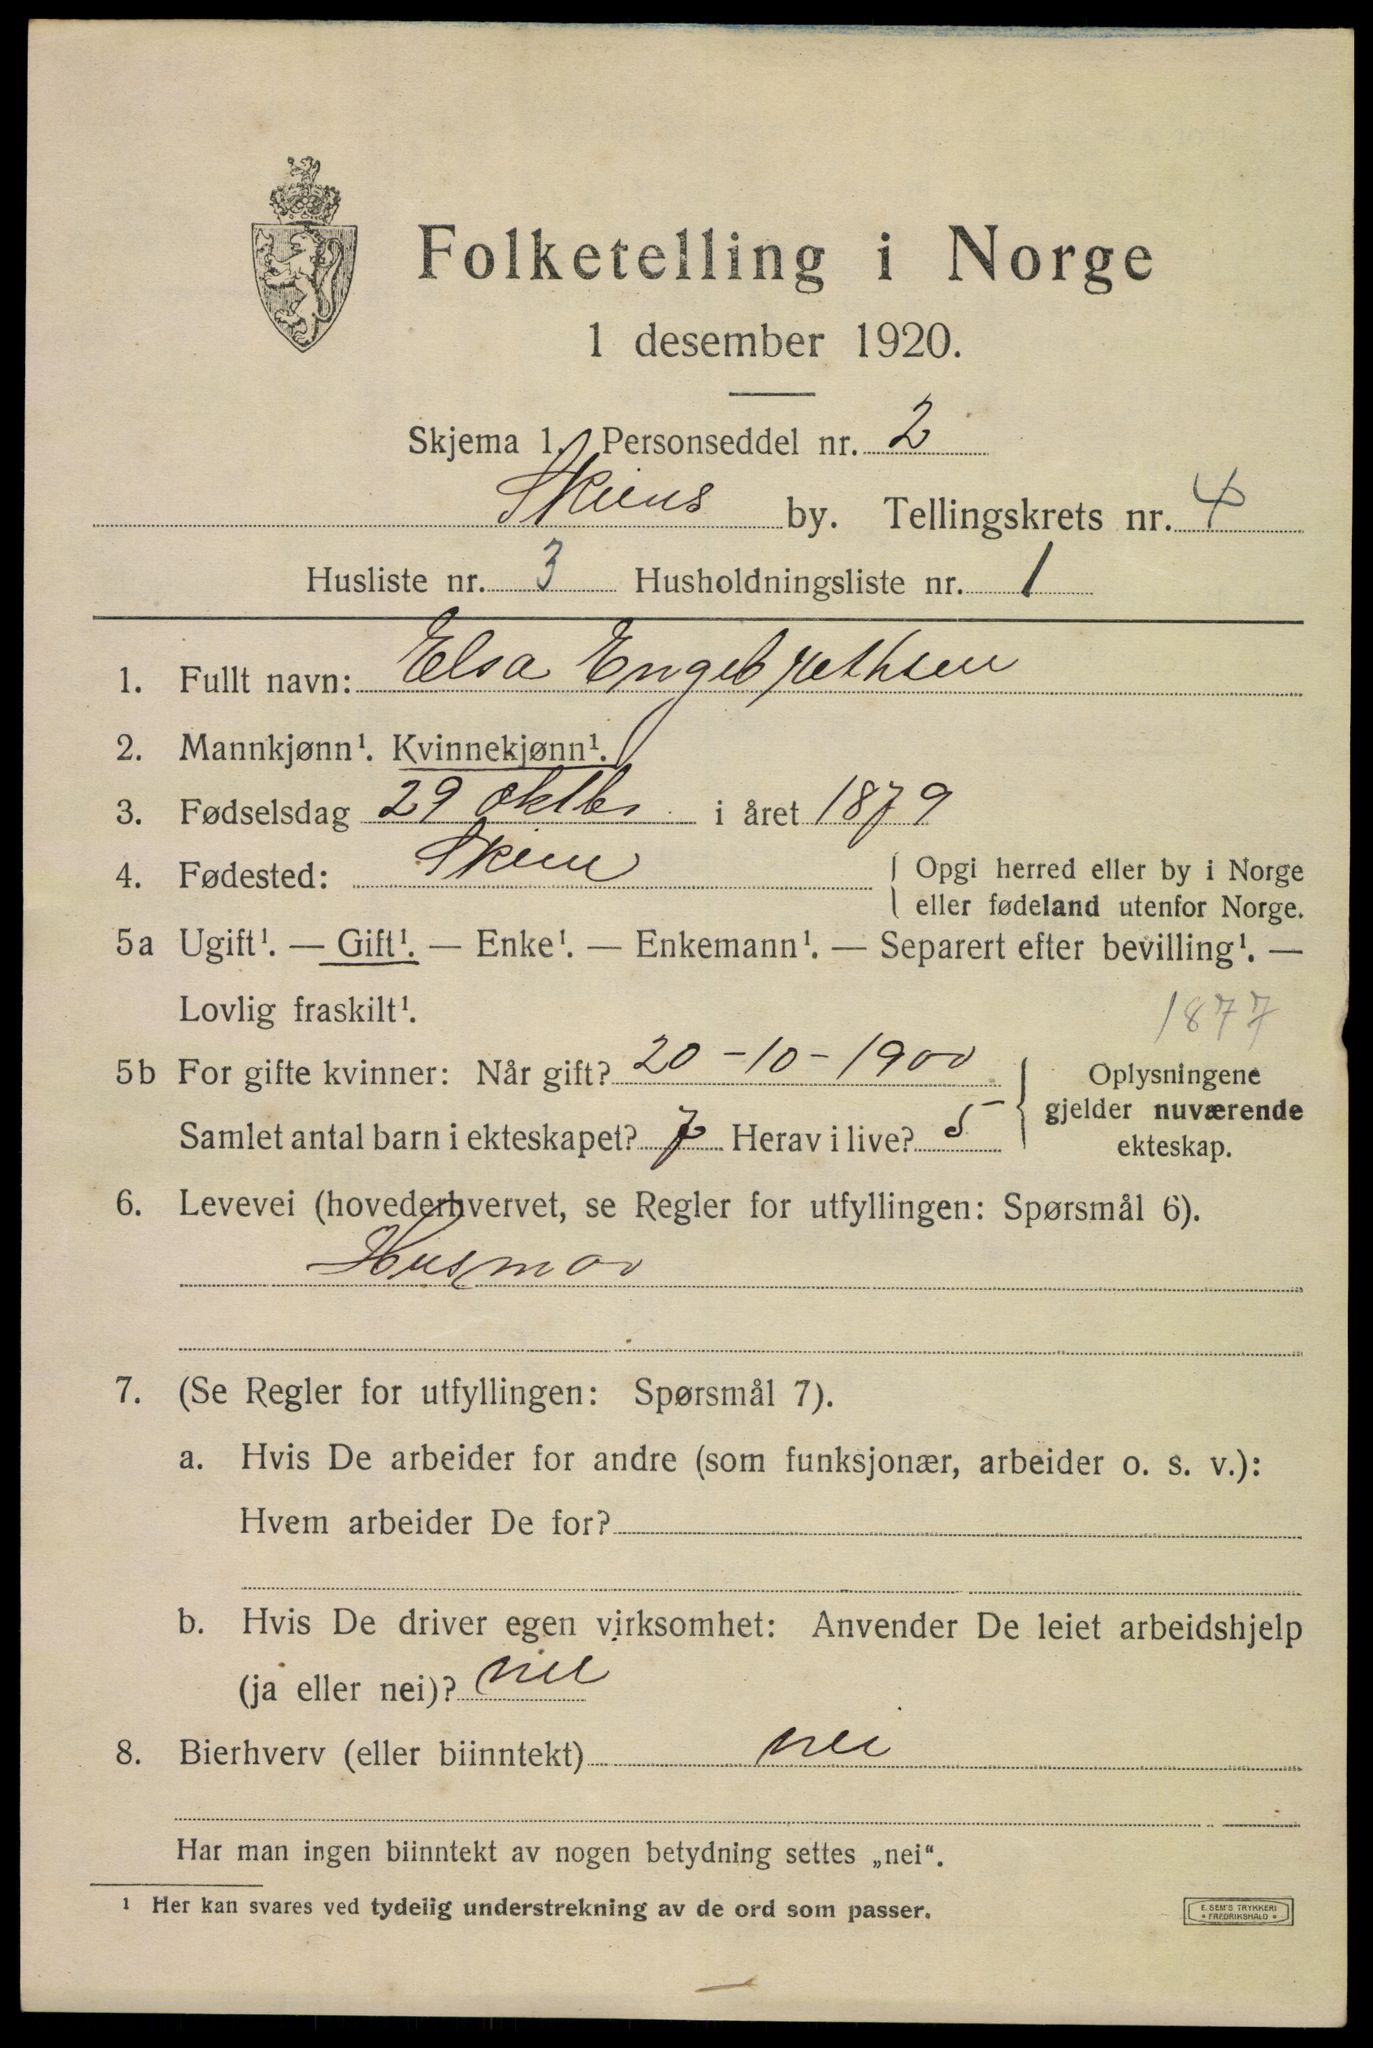 Folketelling i Norge
1 desember 1920.
Skjema 1. Personseddel nr. 2
Skiens by. Tellingskrets nr. 4
Husliste nr. 3 Husholdningsliste nr. 1
1. Fullt navn: Elsa Engebrethsen
2. Mannkjønn¹. Kvinnekjønn¹.
3. Fødselsdag 29 oktbr i året 1879
4. Fødested: Skien { Opgi herred eller by i Norge
eller fødeland utenfor Norge.
5a Ugift¹. — Gift¹. — Enke¹. — Enkemann¹. — Separert efter bevilling¹. —
Lovlig fraskilt¹.
1877
5b For gifte kvinner: Når gift? 20-10-1900
Samlet antal barn i ekteskapet? 7 Herav i live? 5
} Oplysningene
gjelder nuværende
ekteskap.
6. Levevei (hovederhvervet, se Regler for utfyllingen: Spørsmål 6).
Husmor
7. (Se Regler for utfyllingen: Spørsmål 7).
a. Hvis De arbeider for andre (som funksjonær, arbeider o. s. v.):
Hvem arbeider De for?
b. Hvis De driver egen virksomhet: Anvender De leiet arbeidshjelp
(ja eller nei)? nei
8. Bierhverv (eller biinntekt) nei
Har man ingen biinntekt av nogen betydning settes „nei“.
¹ Her kan svares ved tydelig understrekning av de ord som passer.
E. SEM'S TRYKKERI
• FREDRIKSHALD •